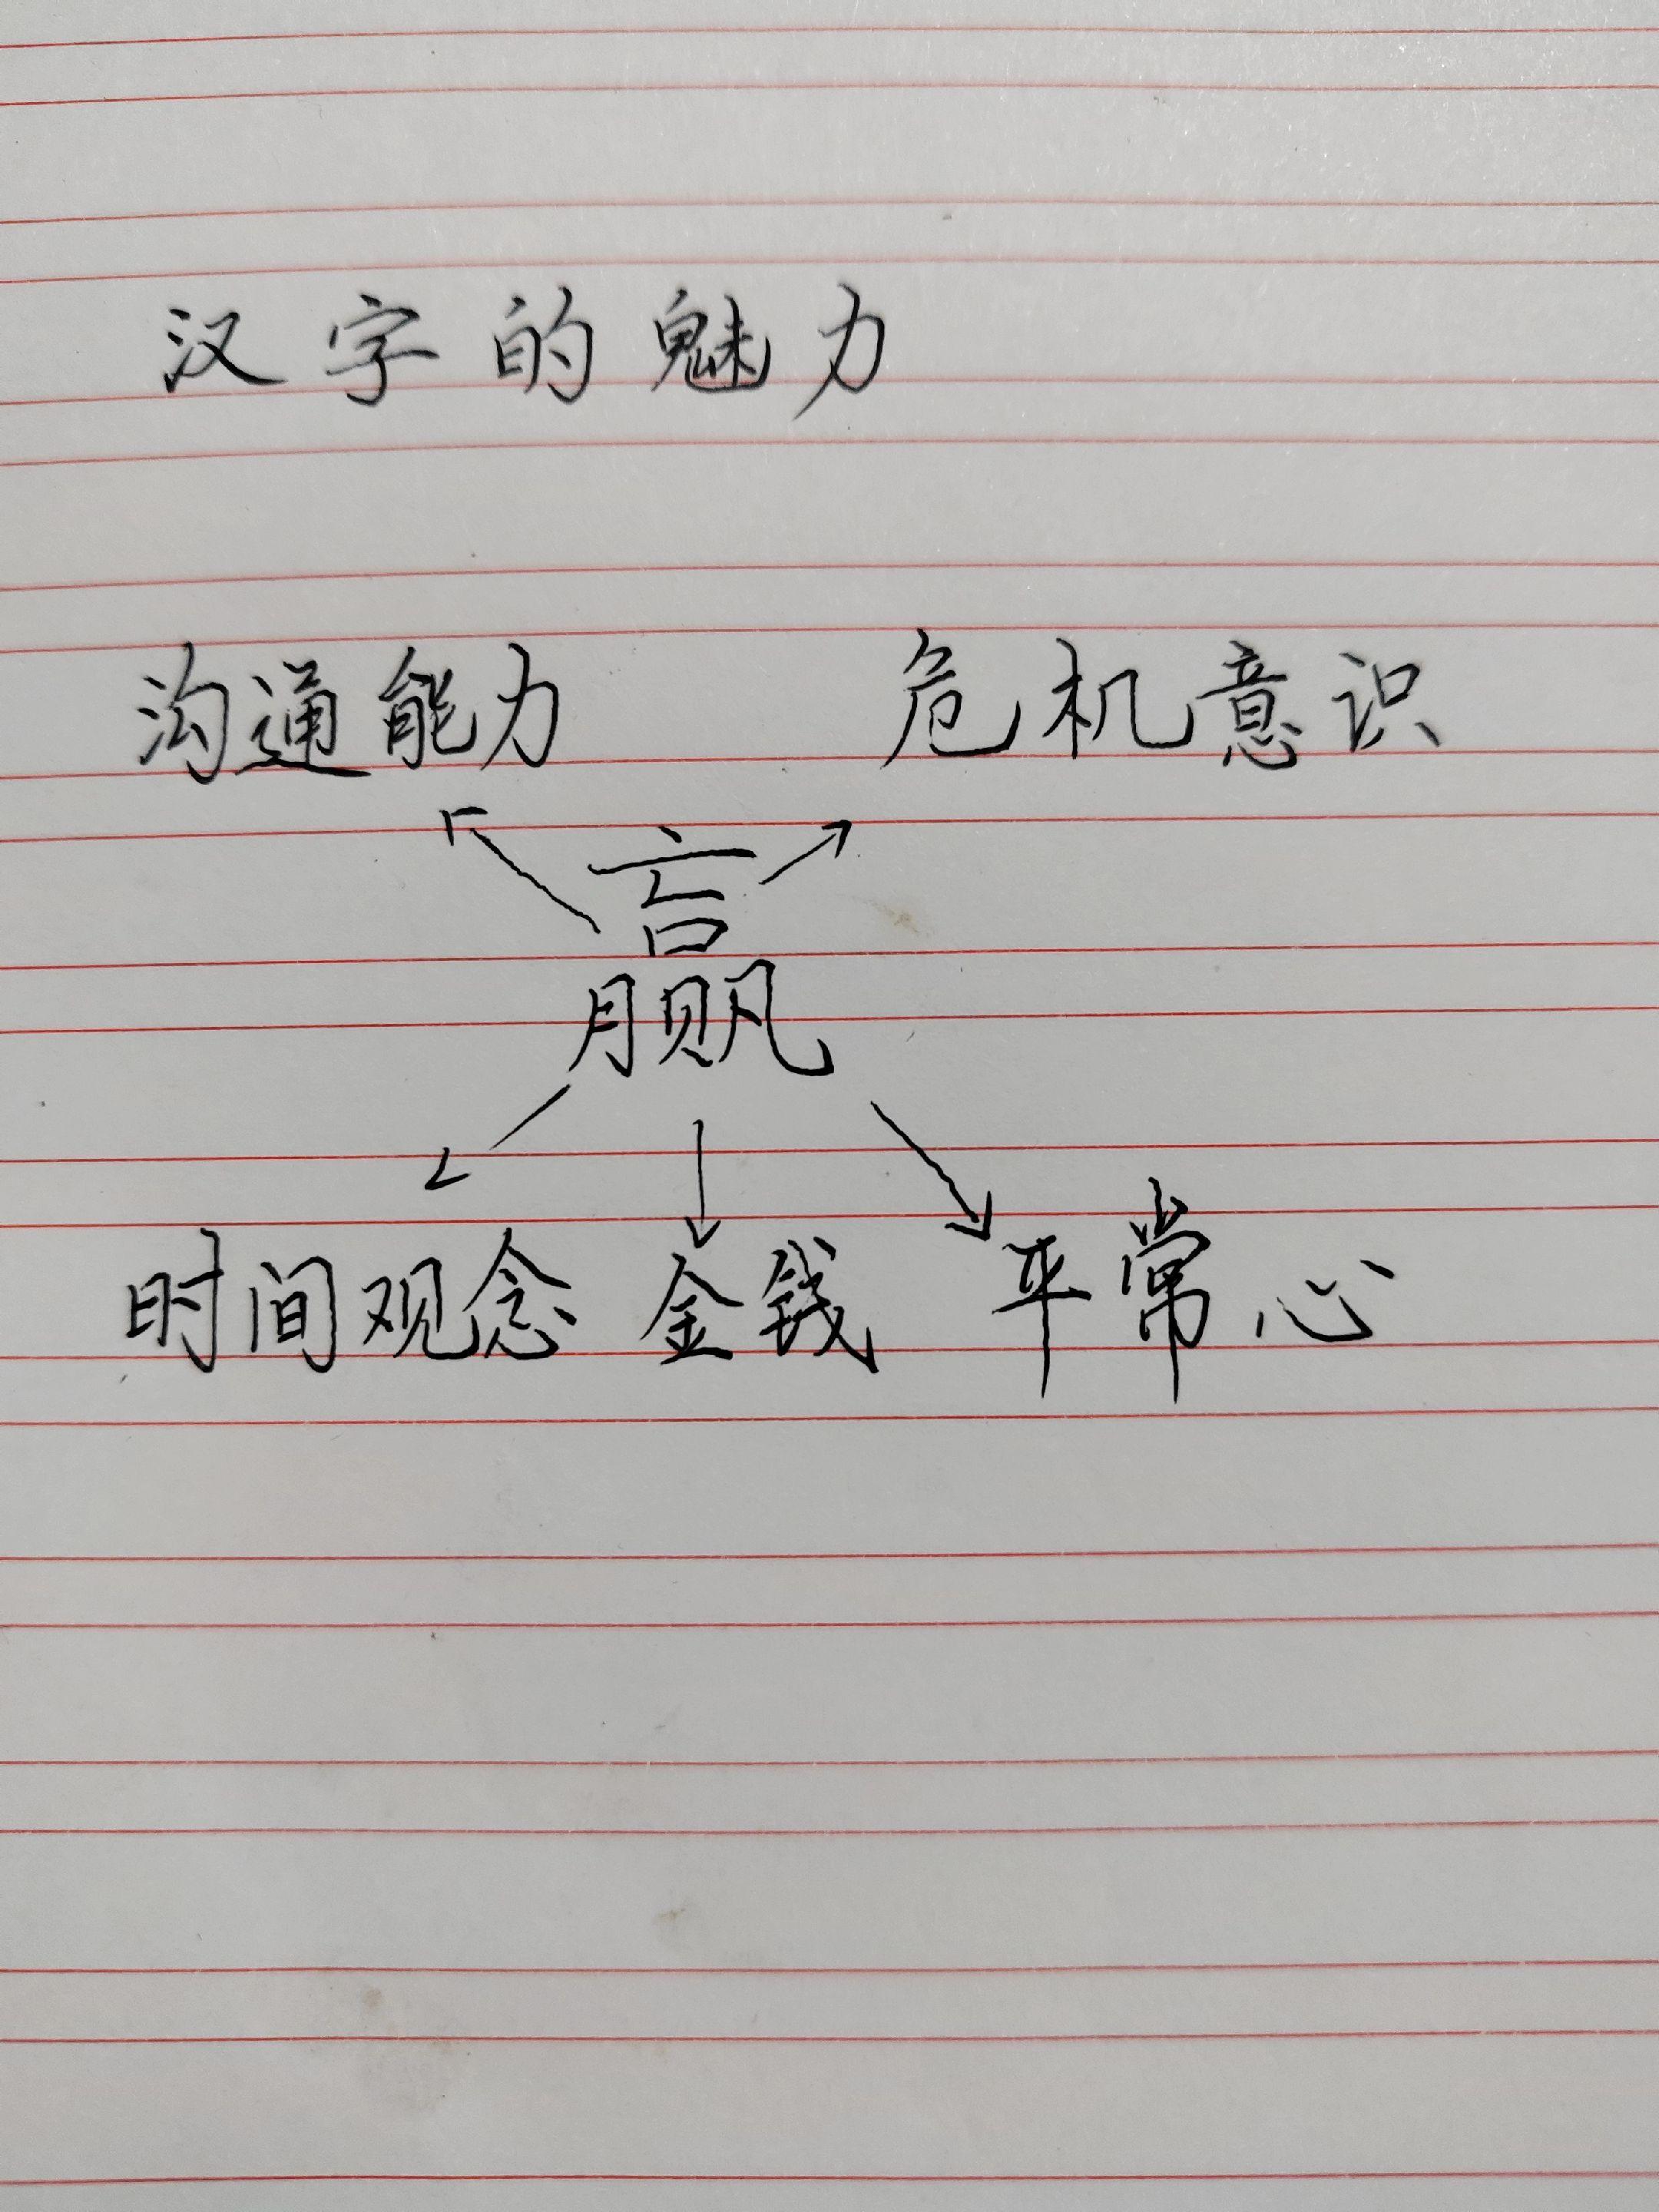 汉字的魅力
沟通能力 危机意识
赢
时间观念 金钱 平常心